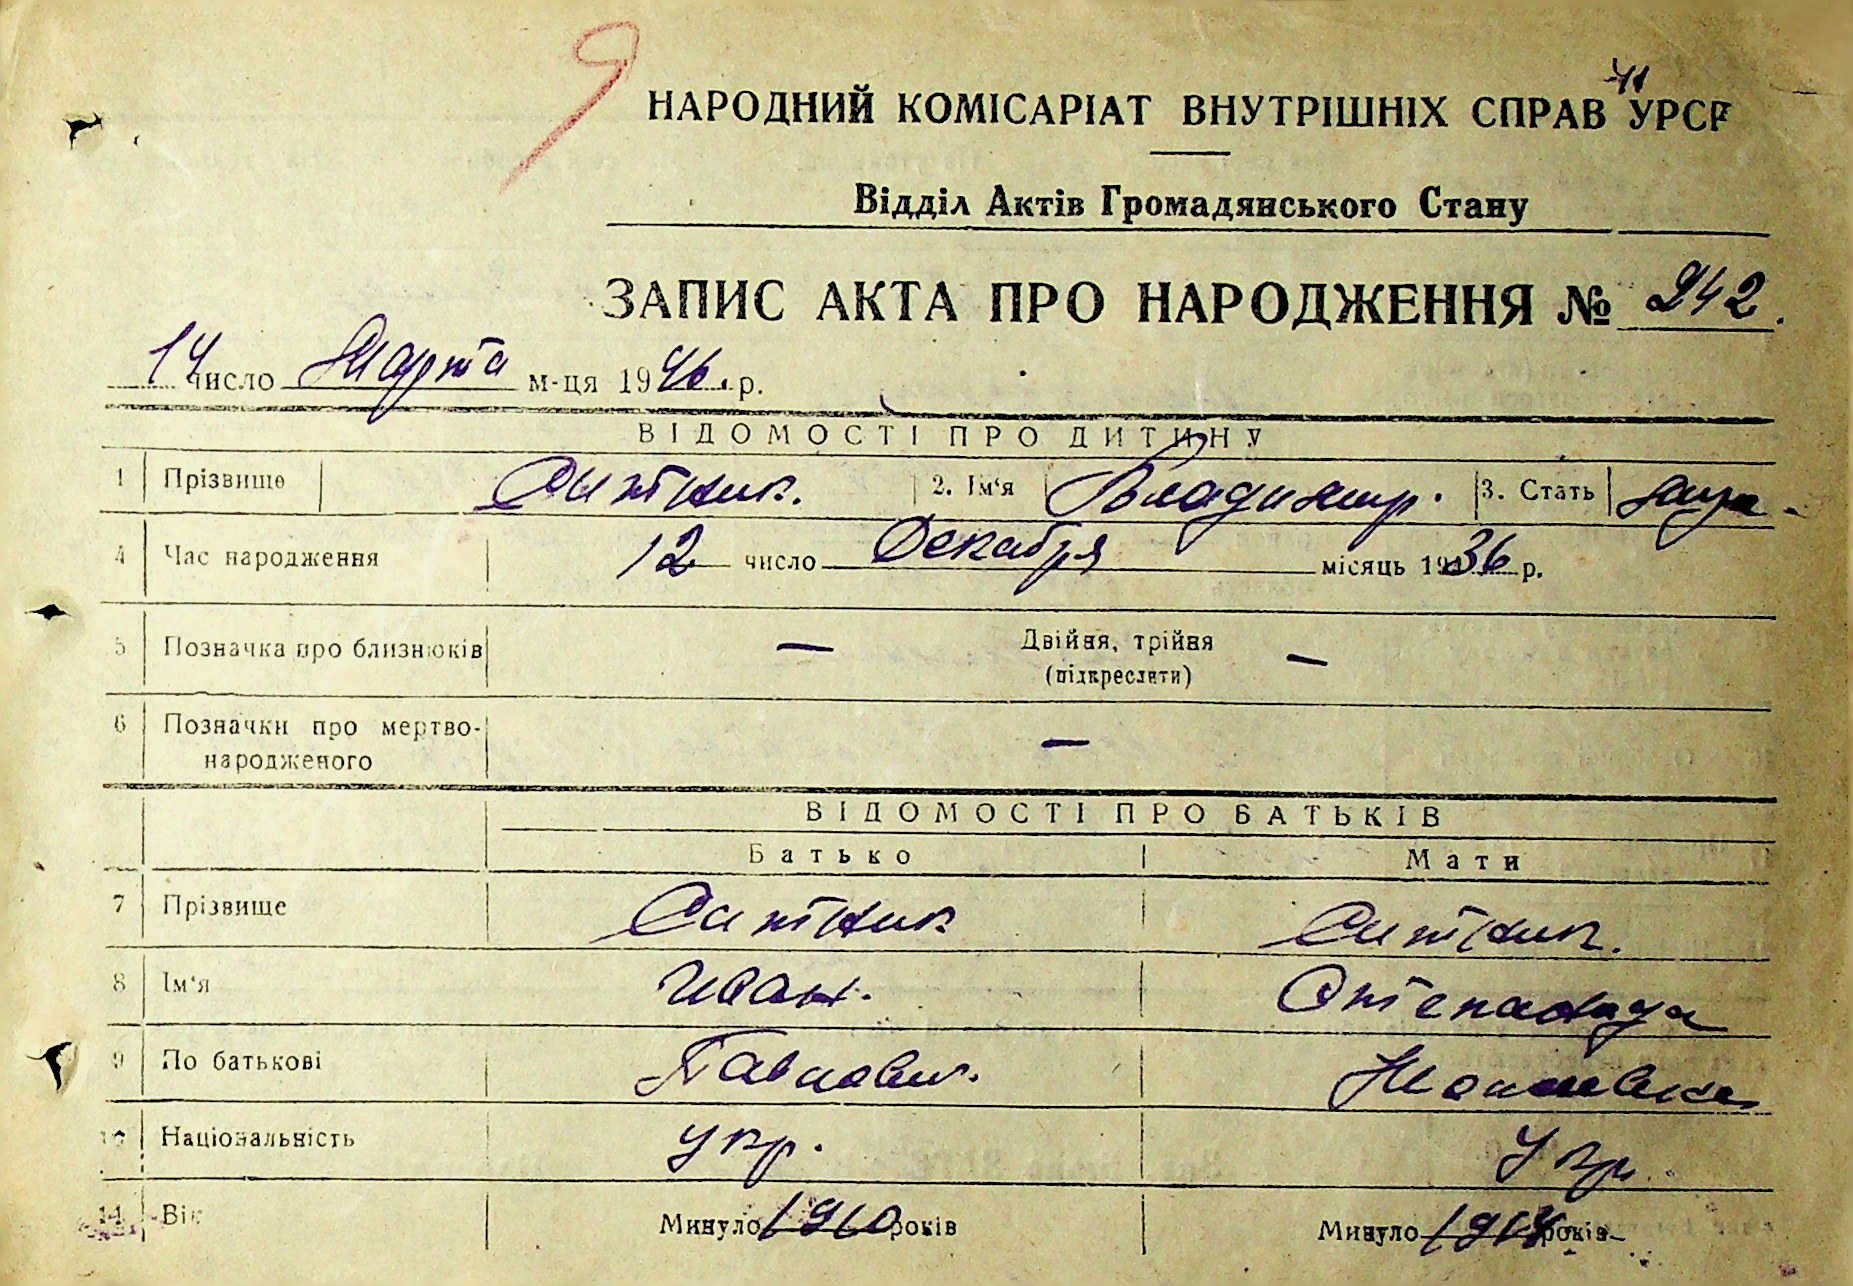 Я
41
НАРОДНИЙ КОМІСАРІАТ ВНУТРІШНІХ СПРАВ УРСР
Відділ Актів Громадянського Стану
ЗАПИС АКТА ПРО НАРОДЖЕННЯ № 242.
14 число Марта м-ця 1946. р.
ВІДОМОСТІ ПРО ДИТИНУ
1 Прізвище Ситник. 2. Ім'я Владимир. 3. Стать муж.
4 Час народження 12 число Декабря місяць 1936 р.
5 Позначка про близнюків — Двійня, трійня —
(підкреслити)
6 Позначки про мертво-
народженого —
ВІДОМОСТІ ПРО БАТЬКІВ
Батько Мати
7 Прізвище Ситник Ситник.
8 Ім'я Иван. Степанида
9 По батькові Павлович.
10 Національність укр. Укр.
11 Вік Минуло 1910 років Минуло 1914 років